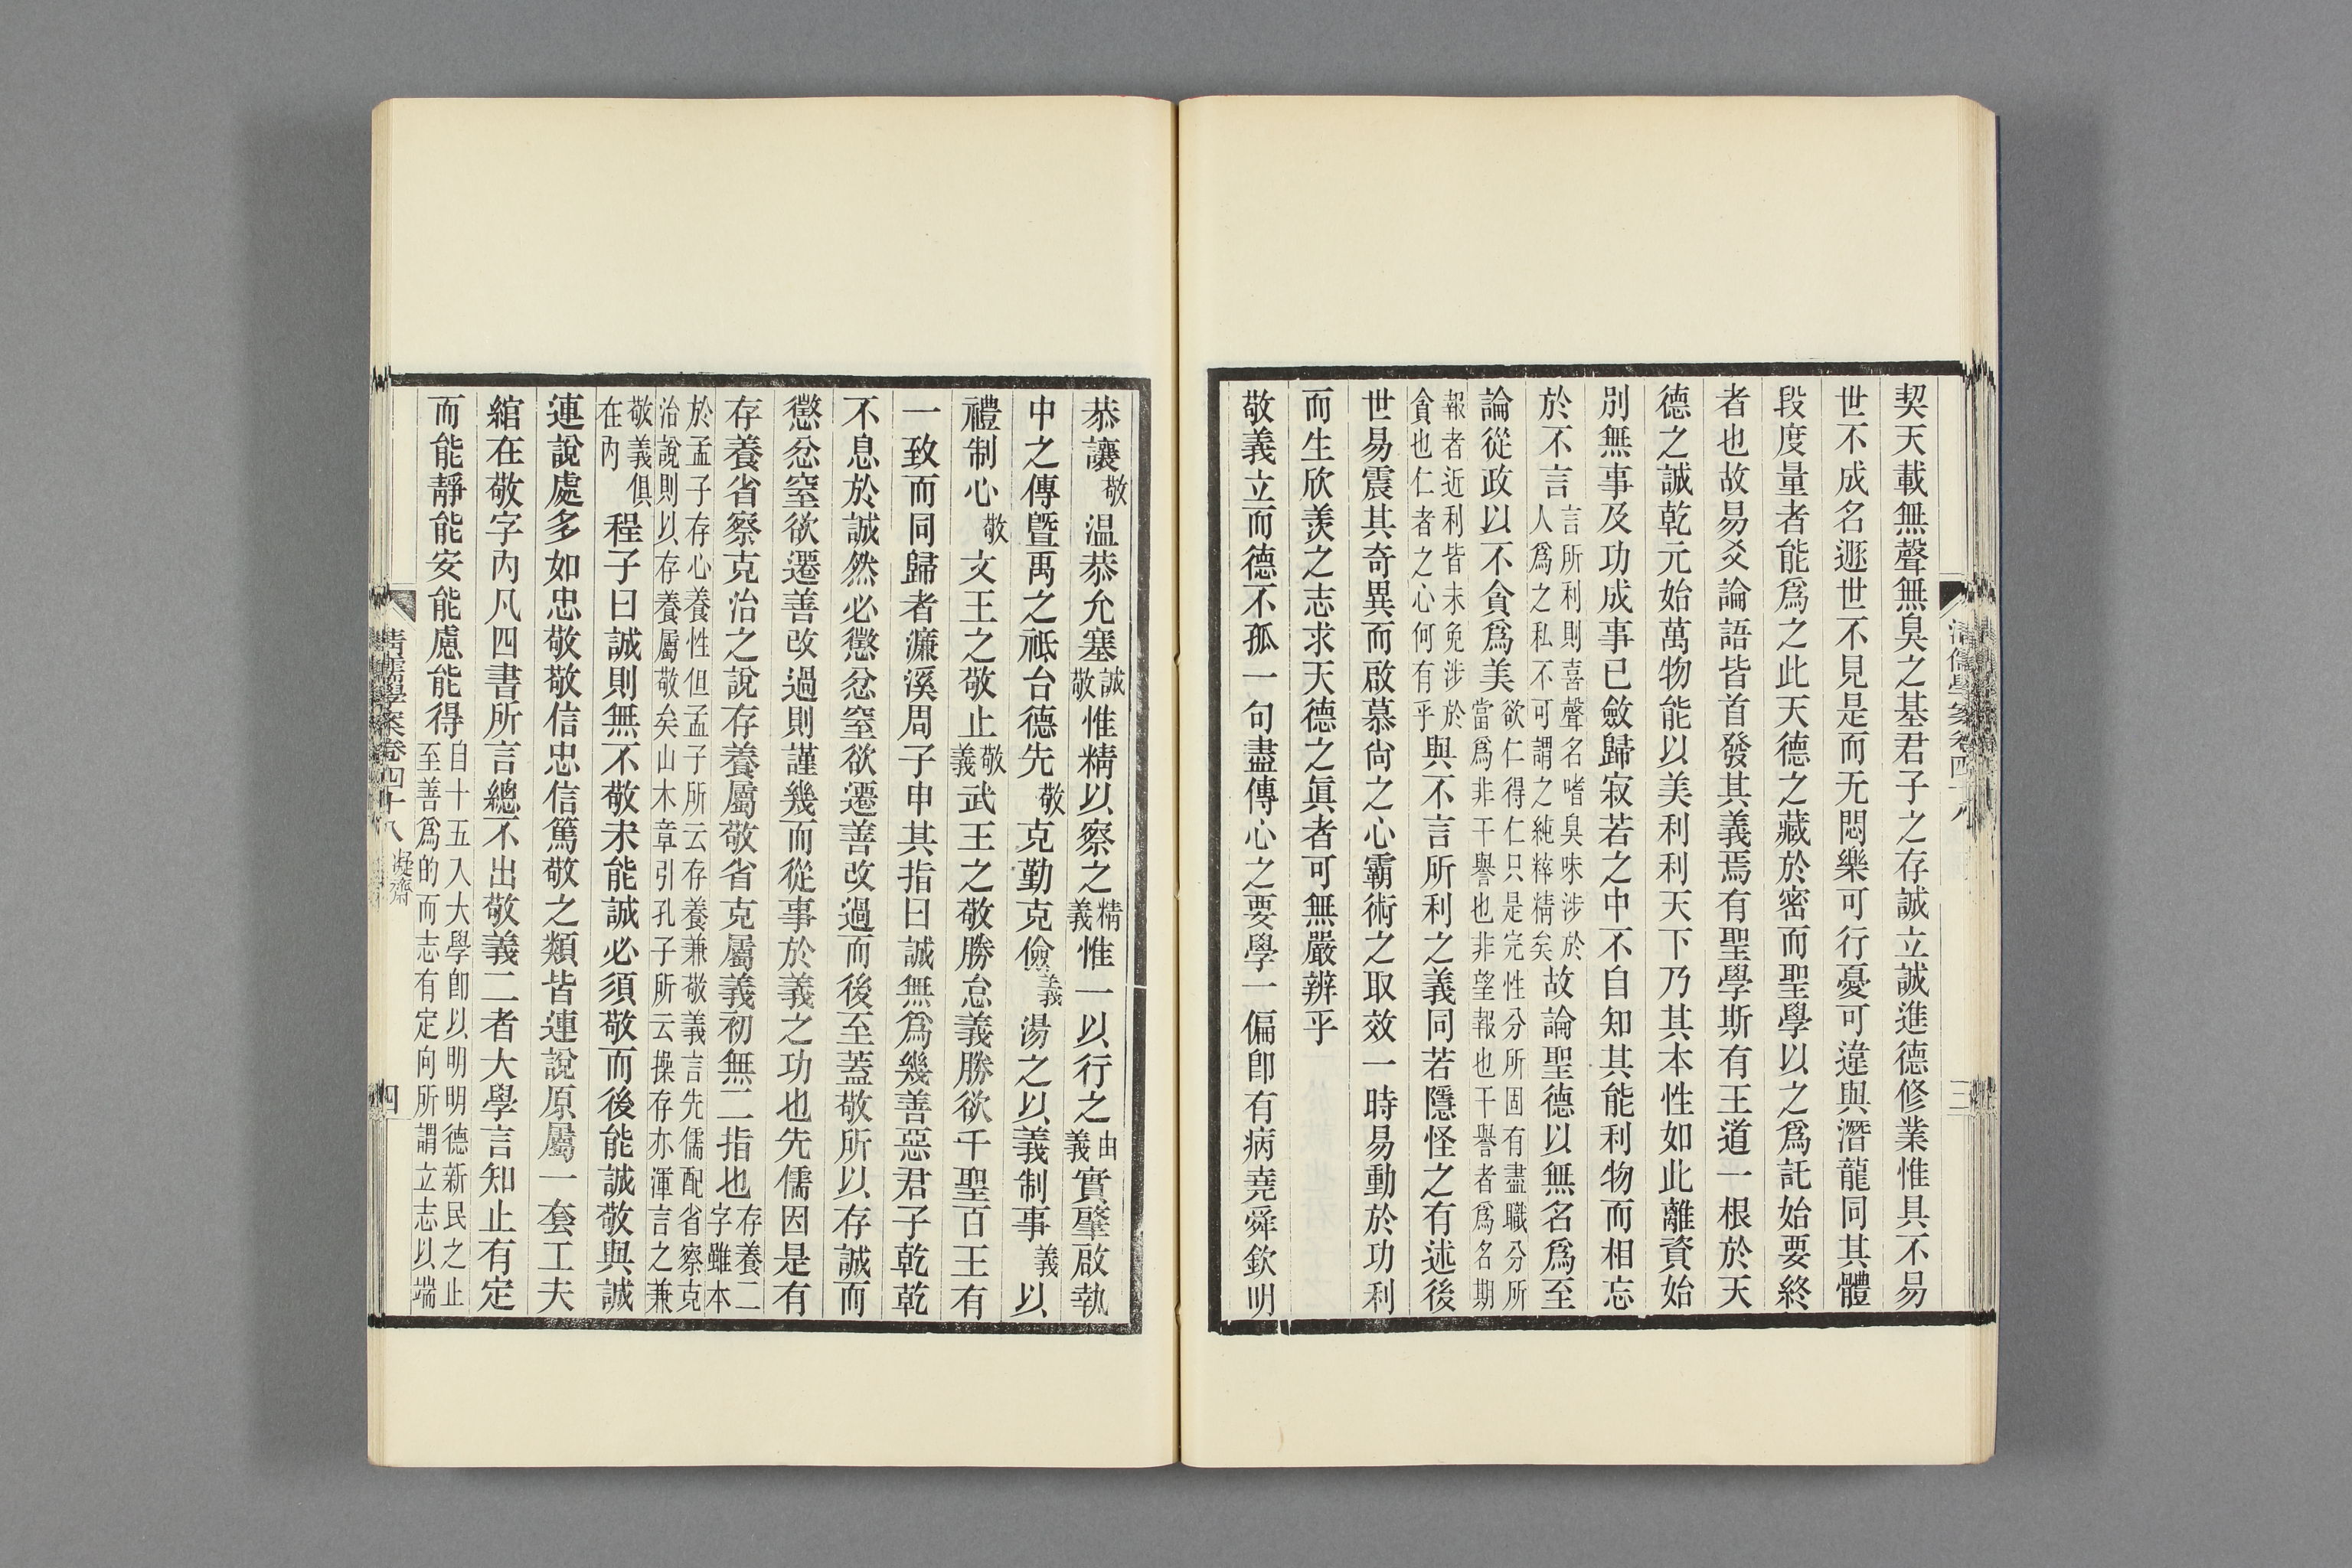 契天載無聲無臭之基君子之存誠立誠進德修業惟具不易
世不成名遯世不見是而无悶樂可行憂可違與潛龍同其體
段度量者能爲之此天德之藏於密而聖學以之爲託始要終
者也故易爻論語皆首發其義焉有聖學斯有王道一根於天
德之誠乾元始萬物能以美利利天下乃其本性如此離資始
別無事及功成事已斂歸寂若之中不自知其能利物而相忘
於不言言所利則喜聲名嗜臭味涉於人爲之私不可謂之純粹精矣故論聖德以無名爲至
論從政以不貪爲美欲仁得仁只是完性分所固有盡職分所當爲非干譽也非望報也干譽者爲名期
報者近利皆未免涉於貪也仁者之心何有乎與不言所利之義同若隱怪之有述後
世易震其奇異而啟慕尙之心霸術之取效一時易動於功利
而生欣羨之志求天德之眞者可無嚴辨乎
敬義立而德不孤一句盡傳心之要學一偏卽有病堯舜欽明
清儒學案卷四十八
三
恭讓敬温恭允塞誠敬惟精以察之精義惟一以行之由義實肇啟執
中之傳曁禹之祗台德先敬克勤克儉義湯之以義制事義以
禮制心敬文王之敬止敬義武王之敬勝怠義勝欲千聖百王有
一致而同歸者濂溪周子申其指曰誠無爲幾善惡君子乾乾
不息於誠然必懲忿窒欲遷善改過而後至蓋敬所以存誠而
懲忿窒欲遷善改過則謹幾而從事於義之功也先儒因是有
存養省察克治之說存養屬敬省克屬義初無二指也存養二字雖本
於孟子存心養性但孟子所云存養兼敬義言先儒配省察克治說則以存養屬敬矣山木章引孔子所云操存亦渾言之兼
敬義俱在內程子曰誠則無不敬未能誠必須敬而後能誠敬與誠
連說處多如忠敬敬信忠信篤敬之類皆連說原屬一套工夫
綰在敬字內凡四書所言總不出敬義二者大學言知止有定
而能靜能安能慮能得自十五入大學卽以明明德新民之止至善爲的而志有定向所謂立志以端
清儒學案卷四十八 凝齋
四